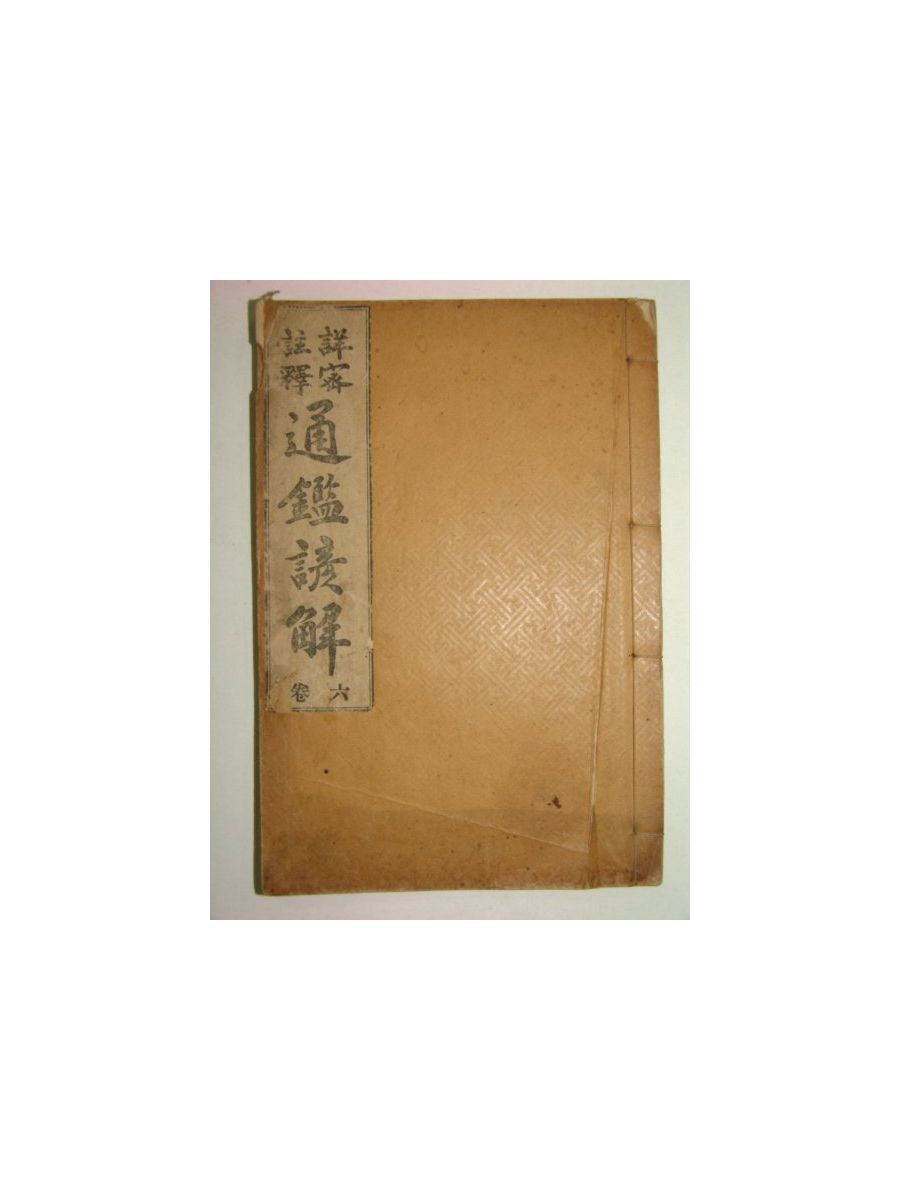 詳密
註釋
通鑑諺解
卷六